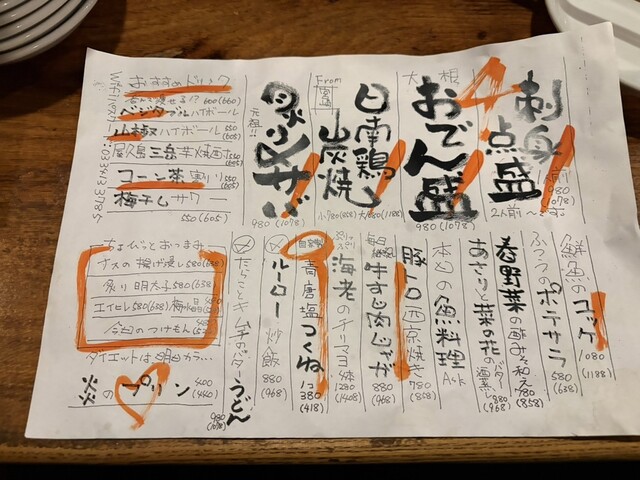 刺身
4点盛
1人前
980
(1078)
2人前〜
大根
おでん盛
980 (1078)
From
宮崎
日南鶏
山炭焼
小780(858) 大1080(1188)
元祖!!
炙りシメサバ
980 (1078)
おすすめのドリンク
600(660)
ベジタブルハイボール
山椒ハイボール 550
(605)
屋久島 三岳 芋焼酎 550
(605)
コーン茶割り 550
(605)
梅干しサワー
550(605)
鮮魚のユッケ
1080
(1188)
ふつうのポテサラ
580
(638)
春野菜の酢みそ和え 780
(858)
あさりと菜の花のバター酒蒸し 880
(968)
本日の魚料理
Ask
豚トロ西京焼き
780
(858)
毎日
牛すじ肉じゃが
880
(968)
ぷりっぷり
海老のチリマヨ
4本
1280
(1408)
自家製
青唐塩つくね
1コ
380
(418)
〆
ルーロー炒飯
880
(968)
〆
たらことキムチのバターうどん
980
(1078)
ちょびっとおつまみ
ナスの揚げ浸し 580(638)
炙り明太子 580(638)
エイヒレ 580(638) 梅水晶
今日のつけもん
ダイエットは明日カラ…
炎のプリン 400
(440)